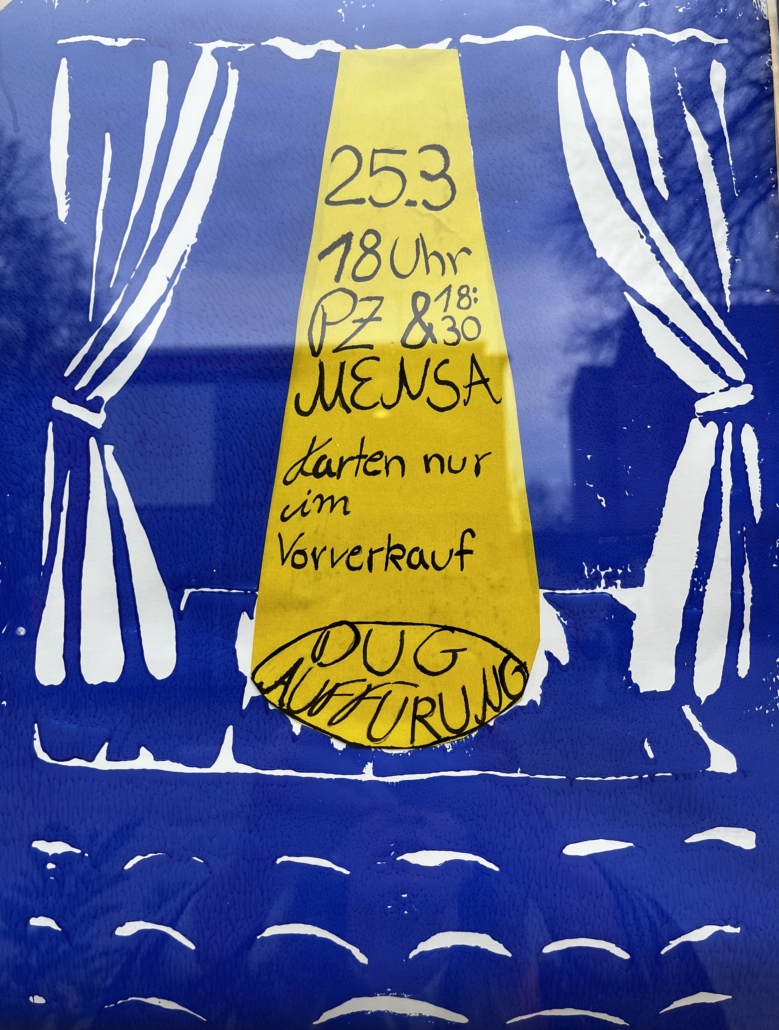 25.3
18 Uhr
PZ & 18:30
MENSA
Karten nur
im
Vorverkauf
DUG
AUFFÜRUNG